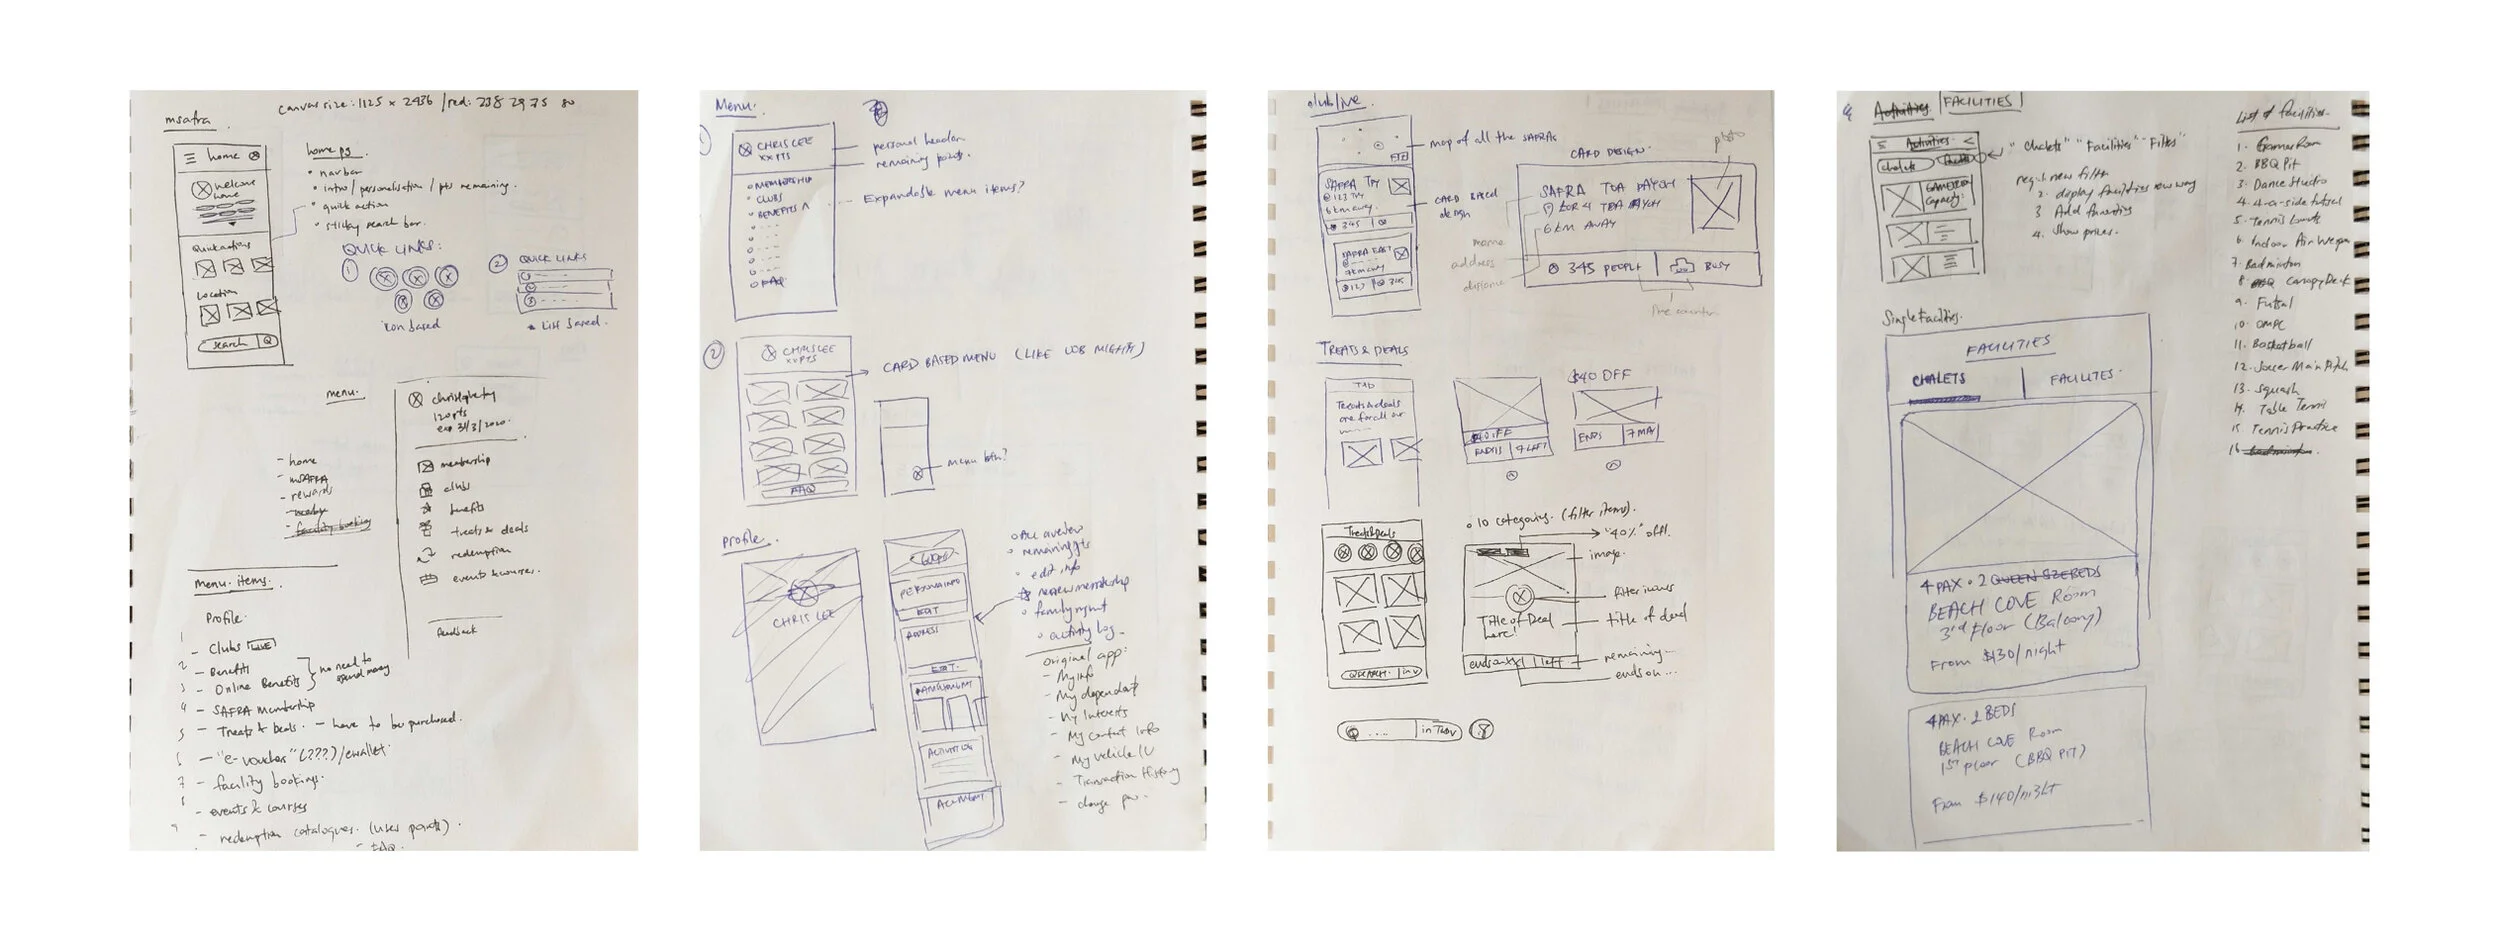 canvas size: 1125 x 2436 / red: 238 29 75 80
msafra
home
welcome home
Quick actions
Location
search
home pg.
navbar
intro / personalisation / pts remaining.
quick action
sticky search bar.
QUICK LINKS:
1
icon based
2
QUICK LINKS
1
2
3
* List based.
menu.
- home
- mSAFRA
- rewards
- nearby
- facility booking
120 pts
exp 31/3/2020.
membership
clubs
benefits
treats & deals
redemption
events & courses.
feedback
menu items.
Profile.
1
- Clubs LIVE
2
- Benefits
3
- Online Benefits
no need to spend money
4
- SAFRA membership
5
- Treats & Deals. - have to be purchased.
6
- "e-voucher" (???)/ewallet.
7
- facility bookings.
8
- events & courses
9
- redemption catalogues. (uses points).
- FAQ.
Menu.
1
CHRIS LEE
XX PTS
personal header
remaining points.
MEMBERSHIP
CLUBS
BENEFITS ^
Expandable menu items?
FAQ
2
CHRIS LEE
XX PTS
CARD BASED MENU (LIKE UOB MIGHTY)
FAQ
menu btn?
Profile.
CHRIS LEE
PERSONAL INFO
EDIT
ADDRESS
EDIT.
FAMILY MGMT
ACTIVITY LOG
ACC MGMT
remaining pts
edit info
renew membership
family mgmt
activity log
original app:
- My info
- My dependant
- My Interests
- My contact info
- My vehicle IU
- Transaction History
- change pw.
club live
map of all the SAFRAs
SAFRA TPY
@ 123 TPY
6km away.
345
SAFRA EAST
7km away
123
345
CARD BASED design
CARD DESIGN
photo
SAFRA TOA PAYOH
LOR 4 TOA PAYOH
6 KM AWAY
name
address
distance
345 PEOPLE
BUSY
live counter
TREATS & DEALS
T&D
Treats & deals
are for all our
$40 OFF
ENDS
7 LEFT
$40 OFF
ENDS
7 MAY
Treats & Deals
10 categories. (filter items).
"40%" off.
image.
filter icons
Title of Deal here!
title of deal
ends on xx
1 left
remaining...
ends on...
SEARCH
in v
....
in T&D v
Activities
FACILITIES
Activities
chalets
GAMEROOM
Capacity:
"Chalets" "Facilities" "Filter"
req. 1. new filter
2. display facilities new way
3 Add Amenities
4. Show prices.
List of facilities.
1. Games Room
2. BBQ Pit
3. Dance Studio
4. 4-a-side futsal
5. Tennis Courts
6. Indoor Air Weapon
7. Badminton
8. Canopy Deck
9. Futsal
10. OMPC
11. Basketball
12. Soccer Main Pitch
13. Squash
14. Table Tennis
15 Tennis Practice
16 Badminton
Single Facilities.
FACILITIES
CHALETS
FACILITIES.
4 PAX • 2 QUEEN SIZE BEDS
BEACH COVE Room
3rd floor (Balcony)
From $130/night
4 PAX • 2 BEDS
BEACH COVE Room
1st floor (BBQ PIT)
From $140/night